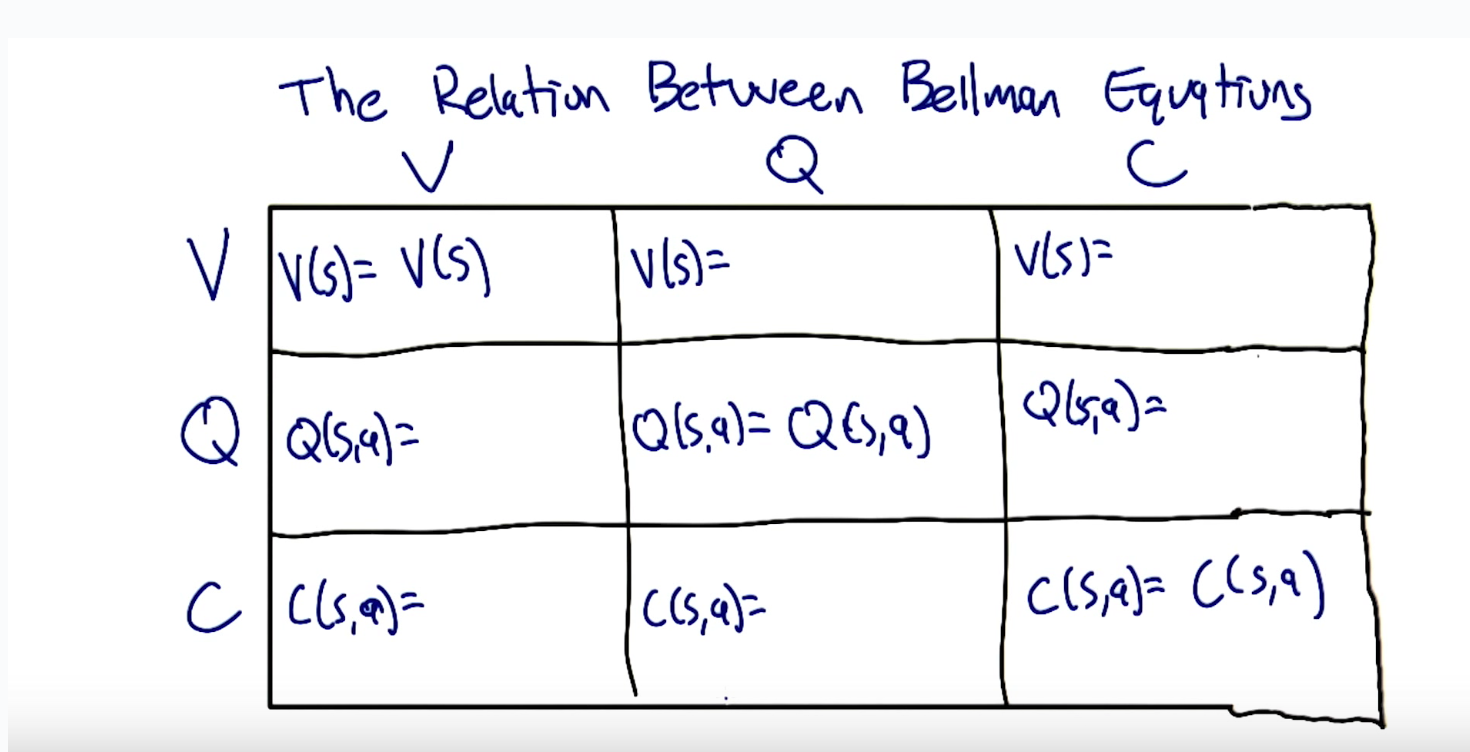 The Relation Between Bellman Equations
V Q C
V V(s)= V(s) V(s)= V(s)=
Q Q(s,a)= Q(s,a)= Q(s,a) Q(s,a)=
C C(s,a)= C(s,a)= C(s,a)= C(s,a)